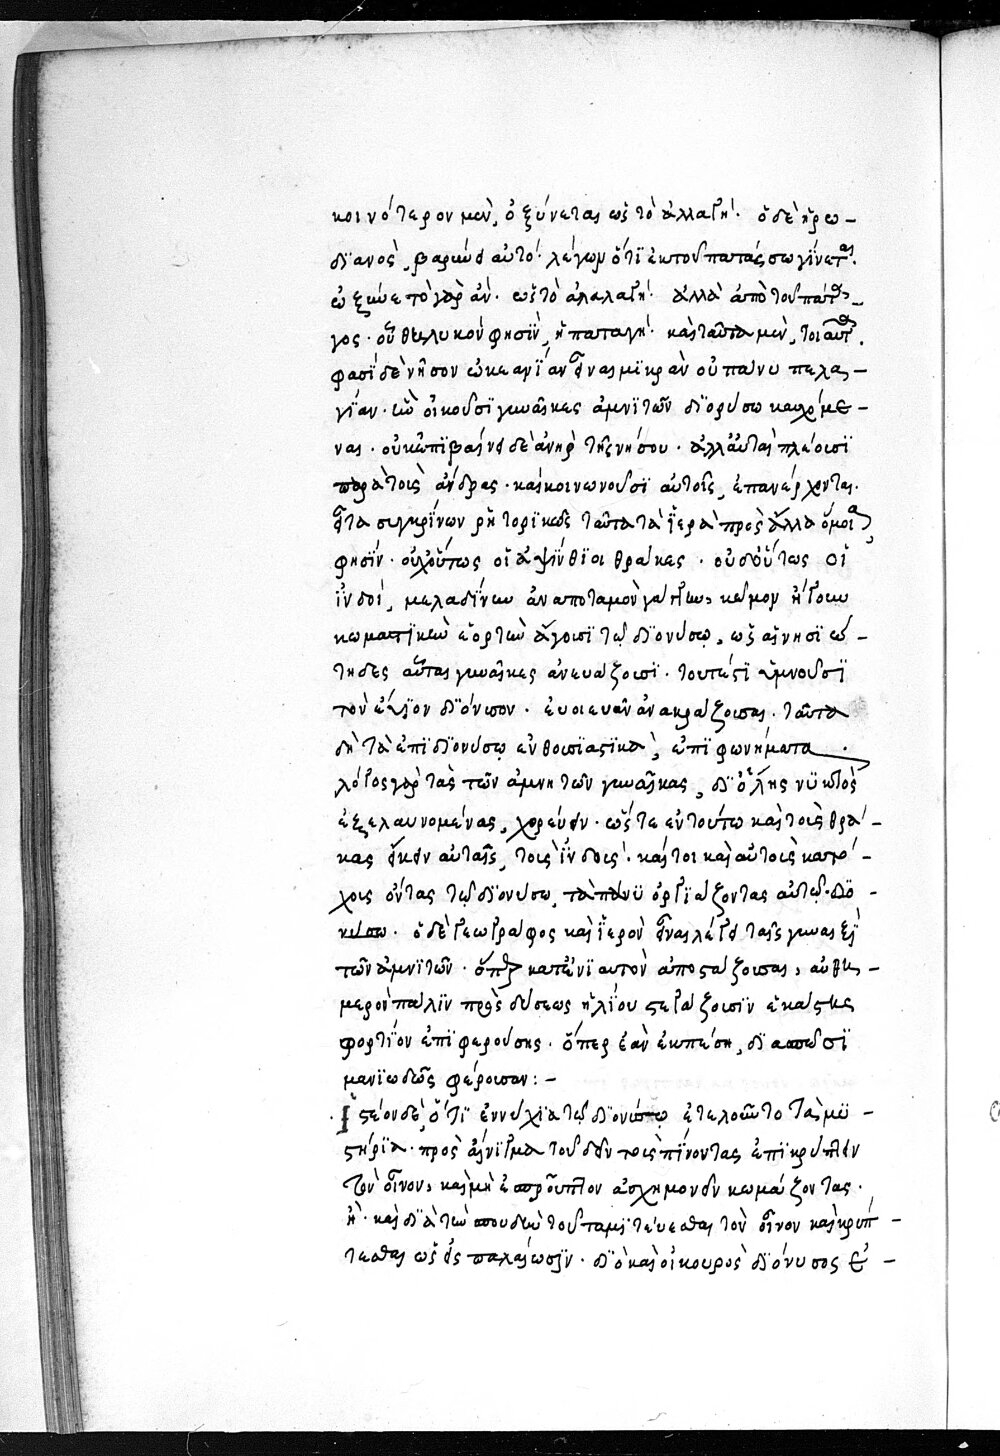 κοινότερον μὲν, ὀξύνεται ὡς τὸ ἀλλαγὴ. ὁ δὲ ἡρω –
διανὸς, βαρύνει αὐτό. λέγων ὅτι ἐκ τοῦ πατάσσω γίνεται.
ὠξύνετο γὰρ ἂν. ὡς τὸ ἀλαλαγή. ἀλλὰ ἀπὸ τοῦ πάτα –
γος. οὗ θηλυκόν φησὶν, ἡ παταγή. καὶ ταῦτα μὲν, τοιαῦτα.
φασὶ δὲ νῆσον ὠκεανίαν εἶναι μικρὰν οὐ πάνυ πελα –
γίαν. ἣν οἰκοῦσι γυναῖκες ἀμνιτῶν διονύσω κατεχόμε –
ναι. οὐκ ἐπιβαίνει δὲ ἀνὴρ τῆς νήσου. ἀλλ' αὐταὶ πλέουσι
παρὰ τοὺς ἄνδρας. καὶ κοινωνοῦσι αὐτοῖς, ἐπανέρχονται.
εἶτα συγκρίνων ῥητορικῶς ταῦτα τὰ ἱερὰ πρὸς ἄλλα ὅμοια,
φησίν. οὐχ οὕτως οἱ ἀψίνθιοι θρᾶκες. οὐδ' οὕτως οἱ
ἰνδοί, μελαδίνην ἀνα ποταμὸν γάγγην, κῶμον ἤγουν
κωματικὴν ἑορτὴν ἄγουσι τῷ διονύσῳ, ὡς αἱ νησιώ –
τηδες αὗται γυναῖκες ἀνευάζουσι. τουτέστι ὑμνοῦσι
τὸν εὔιον διόνυσον. εὐοι εὐὰν ἀνακράζουσαι. ταῦτα
δὴ τὰ ἐπὶ διονύσῳ ἐνθουσιαστικὰ, ἐπιφωνήματα.
λόγος γὰρ τὰς τῶν ἀμνητῶν γυναῖκας, δι' ὅλης νυκτὸς
ἐξελαυνομένας, χορεύειν. ὥστε ἐν τούτω καὶ τοὺς θρᾶ –
κας εἴκειν αὐταῖς, τοὺς ἰνδούς. καίτοι καὶ αὐτοὺς κατό –
χους ὄντας τῷ διονύσω, τὰ πάνυ ὀργιάζοντας αὐτῷ διο –
νύσω. ὁ δὲ γεωγράφος καὶ ἱερὸν εἶναι λέγει ταῖς γυναιξὶ
τῶν ἀμνιτῶν. ὅπερ κατ' ἐνιαυτὸν ἀποστάζουσαι, αὐθη –
μερὸν πάλιν πρὸς δύσεως ἡλίου στεγάζουσιν ἑκάστης
φορτίον ἐπιφερούσης. ὅπερ ἐὰν ἐκπέσῃ, διασπῶσι
μανιωδῶς φέρουσαν: –
Ἰστέον δὲ, ὅτι ἐννύχια τῷ διονύσῳ ἐτελοῦντο τὰ μυ –
στήρια. πρὸς αἴνιγμα τοῦ δεῖν τοὺς πίνοντας ἐπικρύπτειν
τὸν οἶνον, καὶ μὴ ἐς προὖπτον ἀσχημονεῖν κωμάζοντας.
ἢ. καὶ διὰ τὴν σπουδὴν τοῦ ταμιεύεσθαι τὸν οἶνον καὶ κρύπ –
τεσθαι ὡς εἰς παλαίωσιν. διὸ καὶ οἰκουρὸς διόνυσος ἐ –